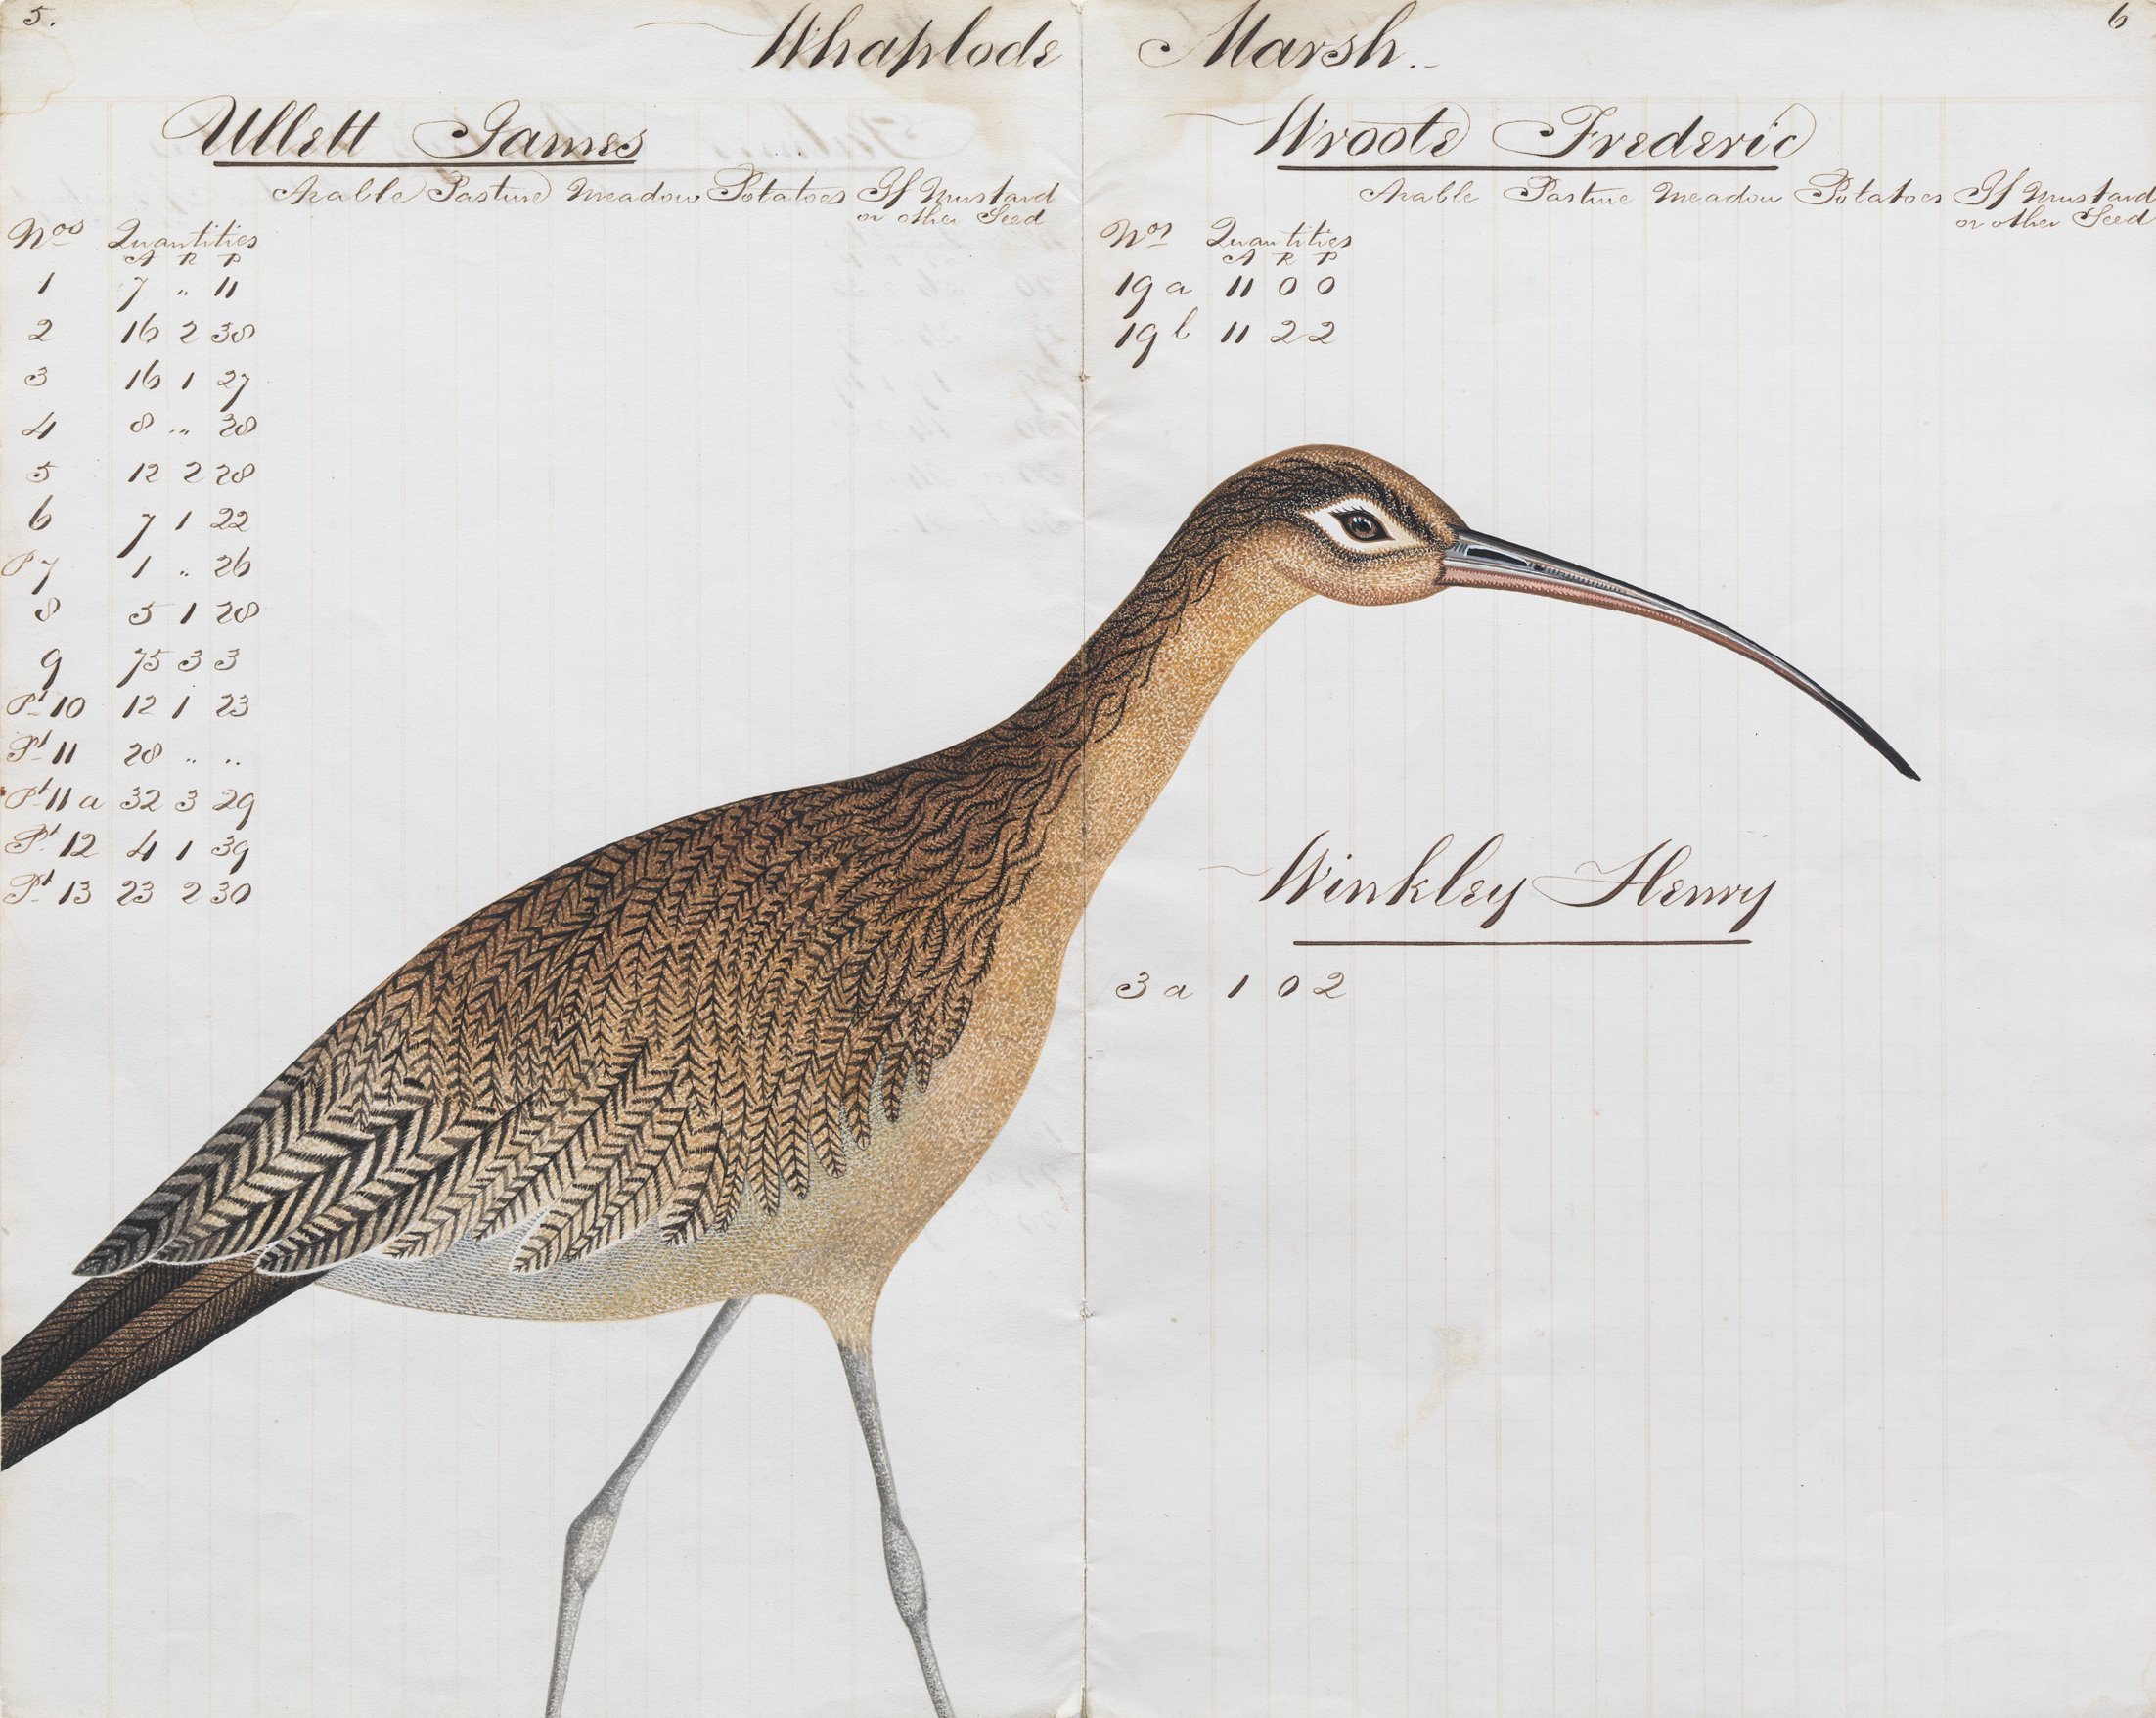 5.
Whaplode Marsh.
6
Ullett James
Arable Pasture Meadow Potatoes If Mustard
or other Seed
Nos Quantities
A R P
1 7 .. 11
2 16 2 38
3 16 1 27
4 8 .. 38
5 12 2 28
6 7 1 22
P 7 1 .. 26
8 5 1 28
9 75 3 3
Pt 10 12 1 23
Pt 11 28 .. ..
Pt 11 a 32 3 29
Pt 12 4 1 39
Pt 13 23 2 30
Wroote Frederic
Arable Pasture Meadow Potatoes If Mustard
or other Seed
Nos Quantities
A R P
19 a 11 0 0
19 b 11 2 2
Winkley Henry
3 a 1 0 2